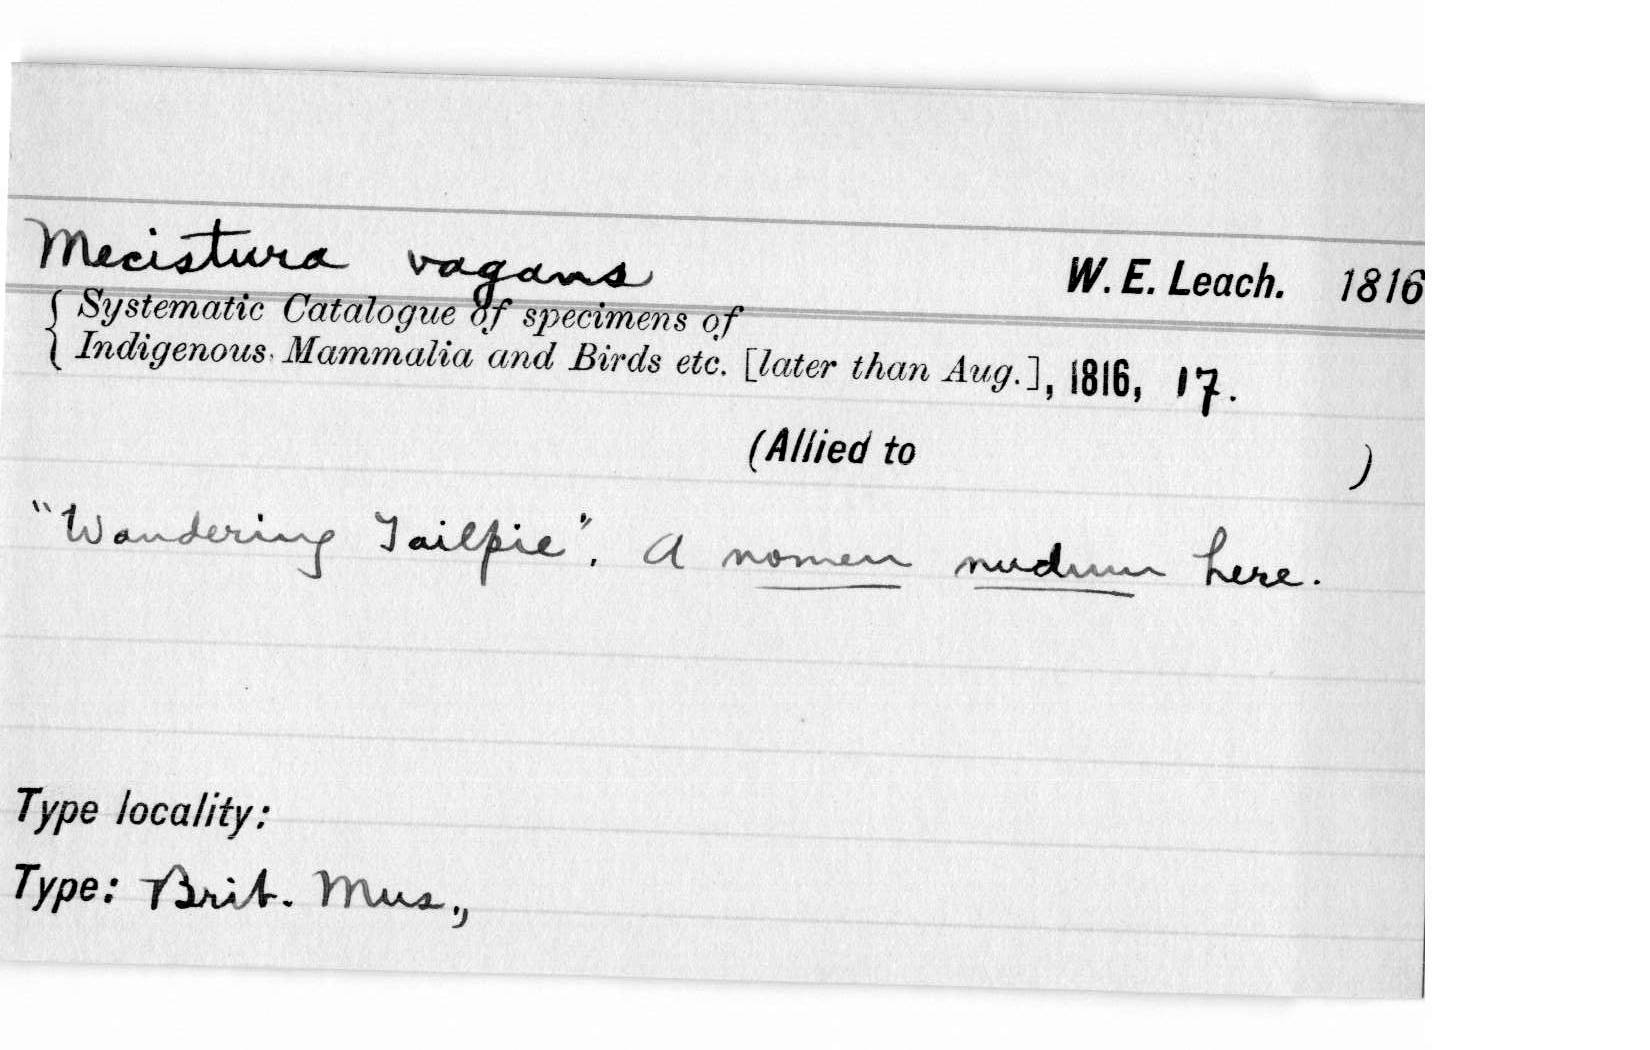 Mecistura vagans W. E. Leach. 1816
{ Systematic Catalogue of specimens of
Indigenous Mammalia and Birds etc. [later than Aug.], 1816, 17.
(Allied to )
"Wandering Tailpie". A nomen nudum here.
Type locality:
Type: Brit. Mus.,